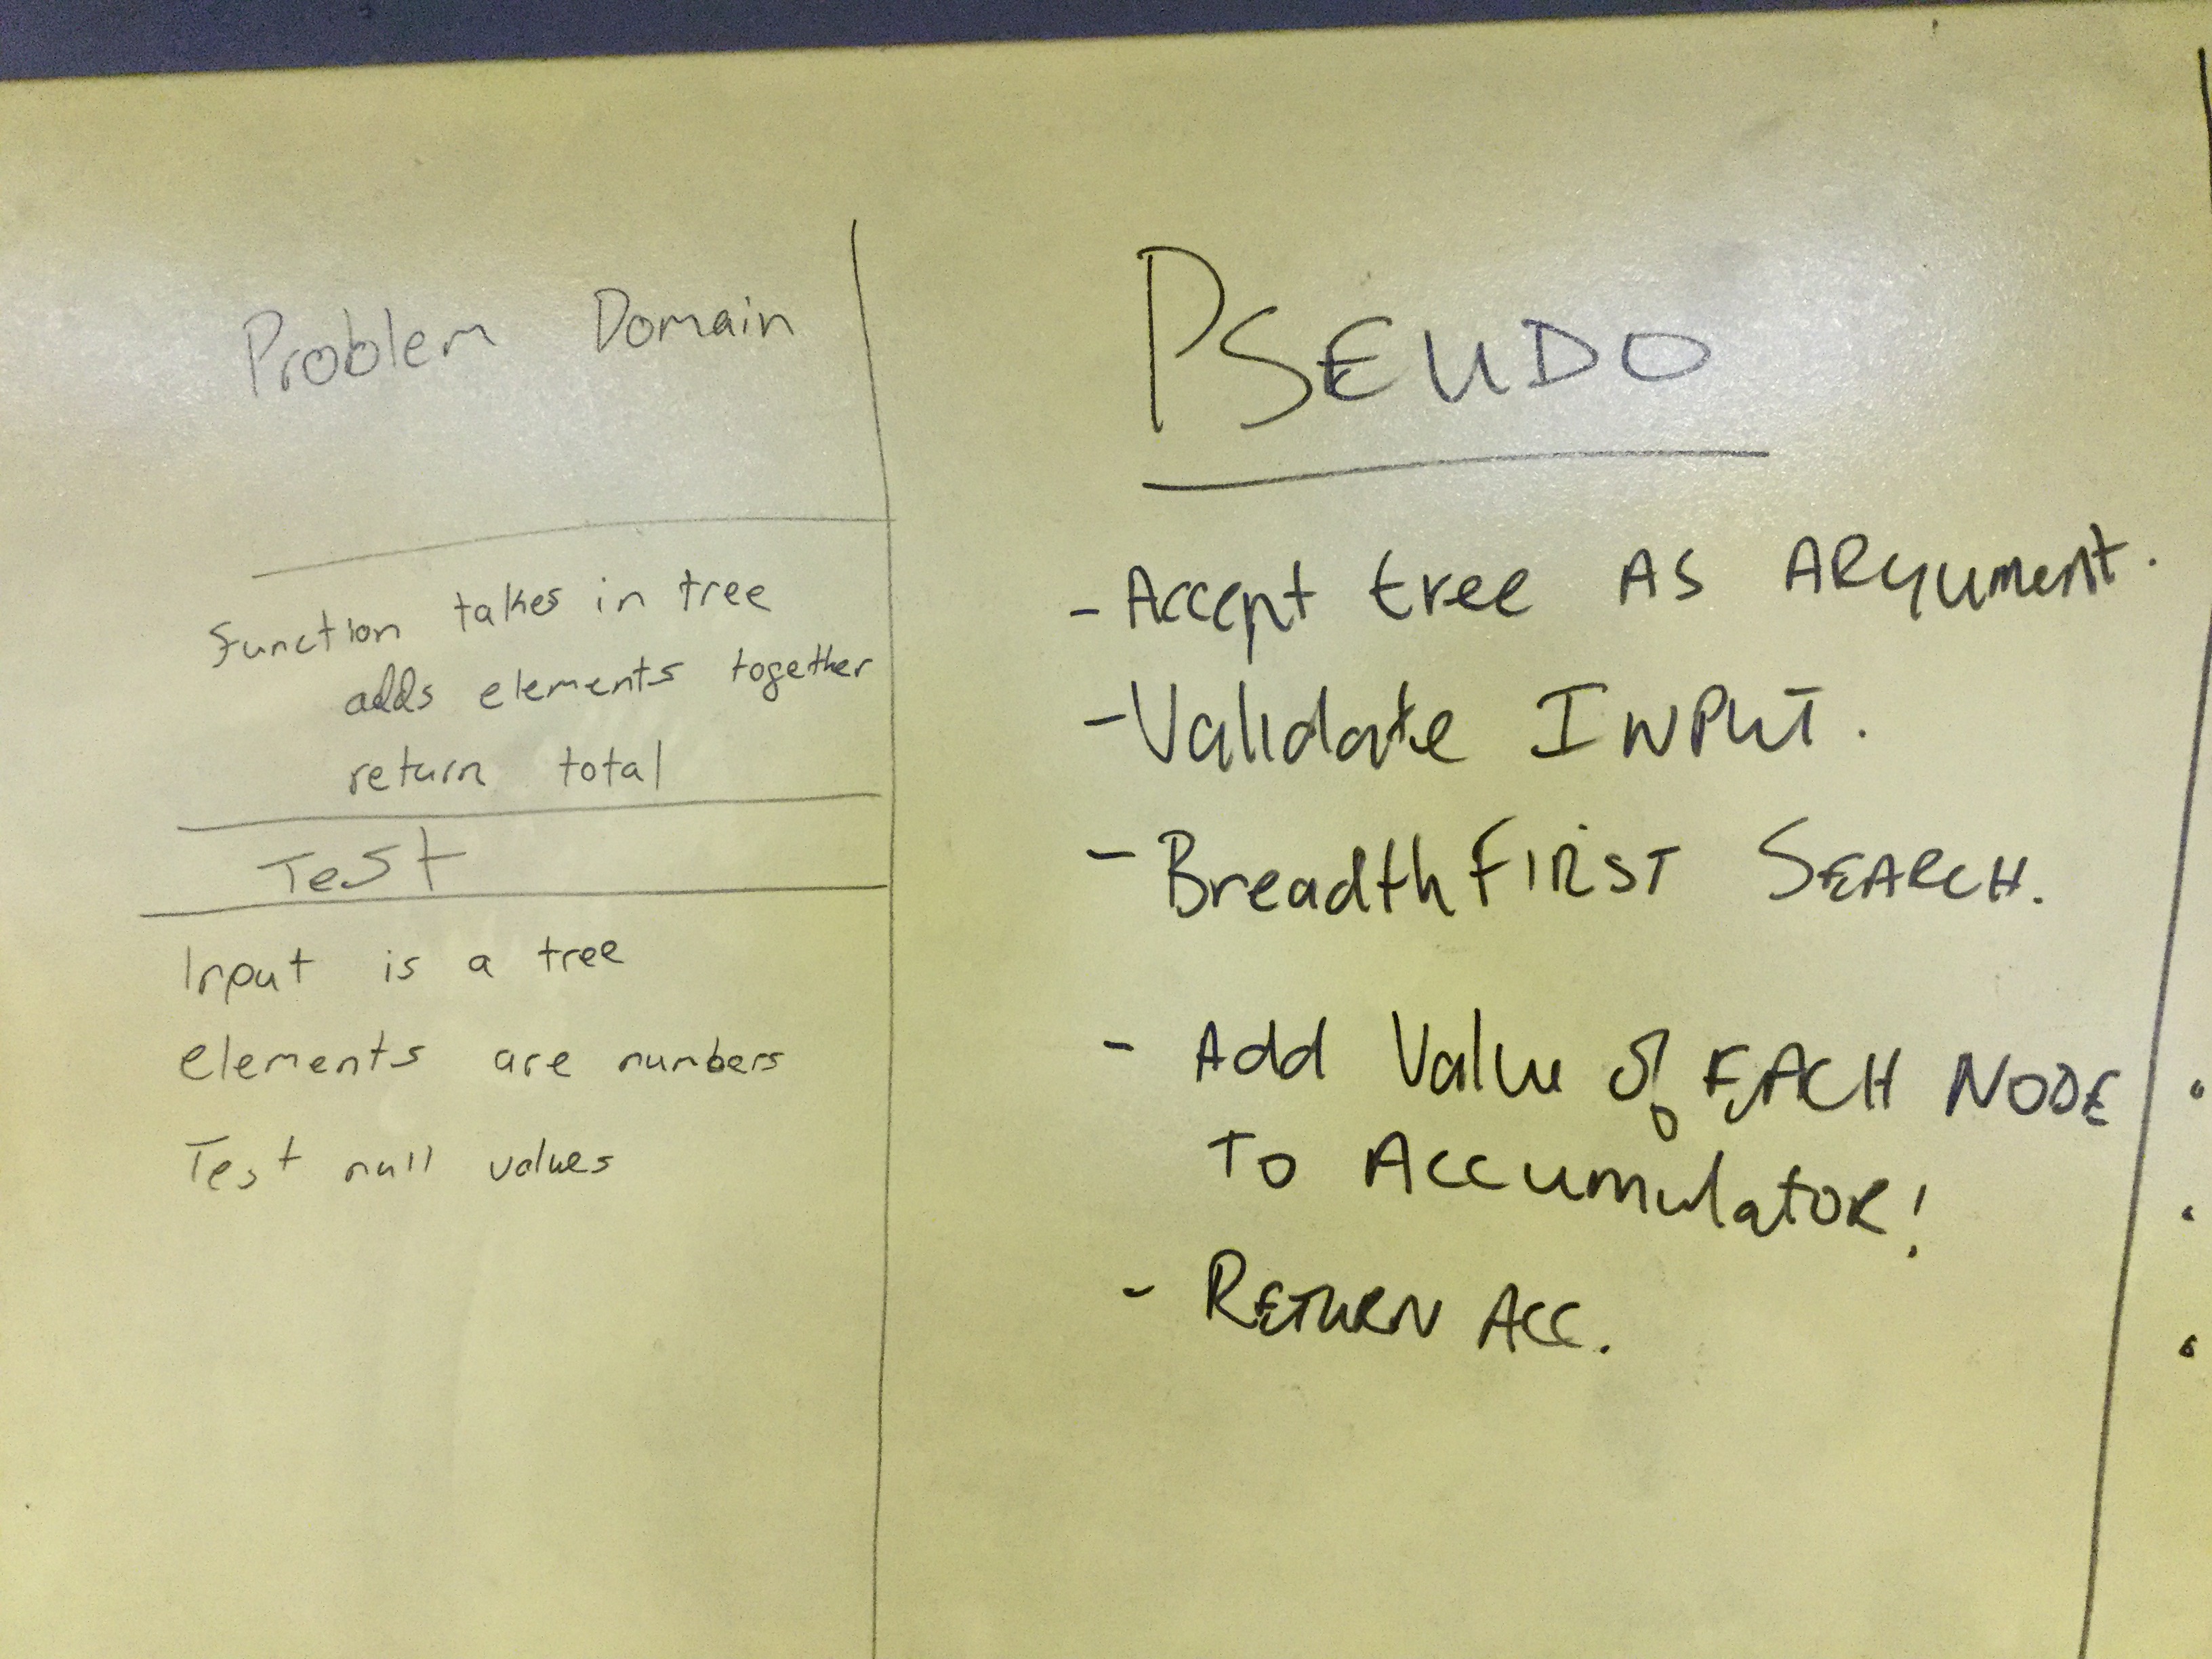 Problem Domain
Function takes in tree
adds elements together
return total
Test
Input is a tree
elements are numbers
Test null values
PSEUDO
- Accept tree AS ARgument.
- Validate INPUT.
- Breadth FIRST SEARCH.
- Add Value of EACH NODE
To Accumulator!
- RETURN Acc.